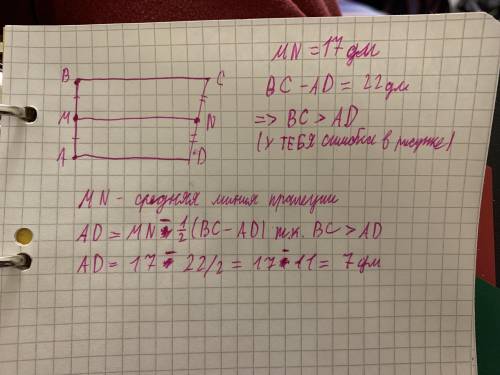 MN = 17 дм
BC - AD = 22 дм
=> BC > AD
(У ТЕБЯ ошибка в рисунке)
B C
M N
A D
MN - средняя линия трапеции
AD = MN - 1/2 (BC - AD) т.к. BC > AD
AD = 17 - 22/2 = 17 - 11 = 7 дм